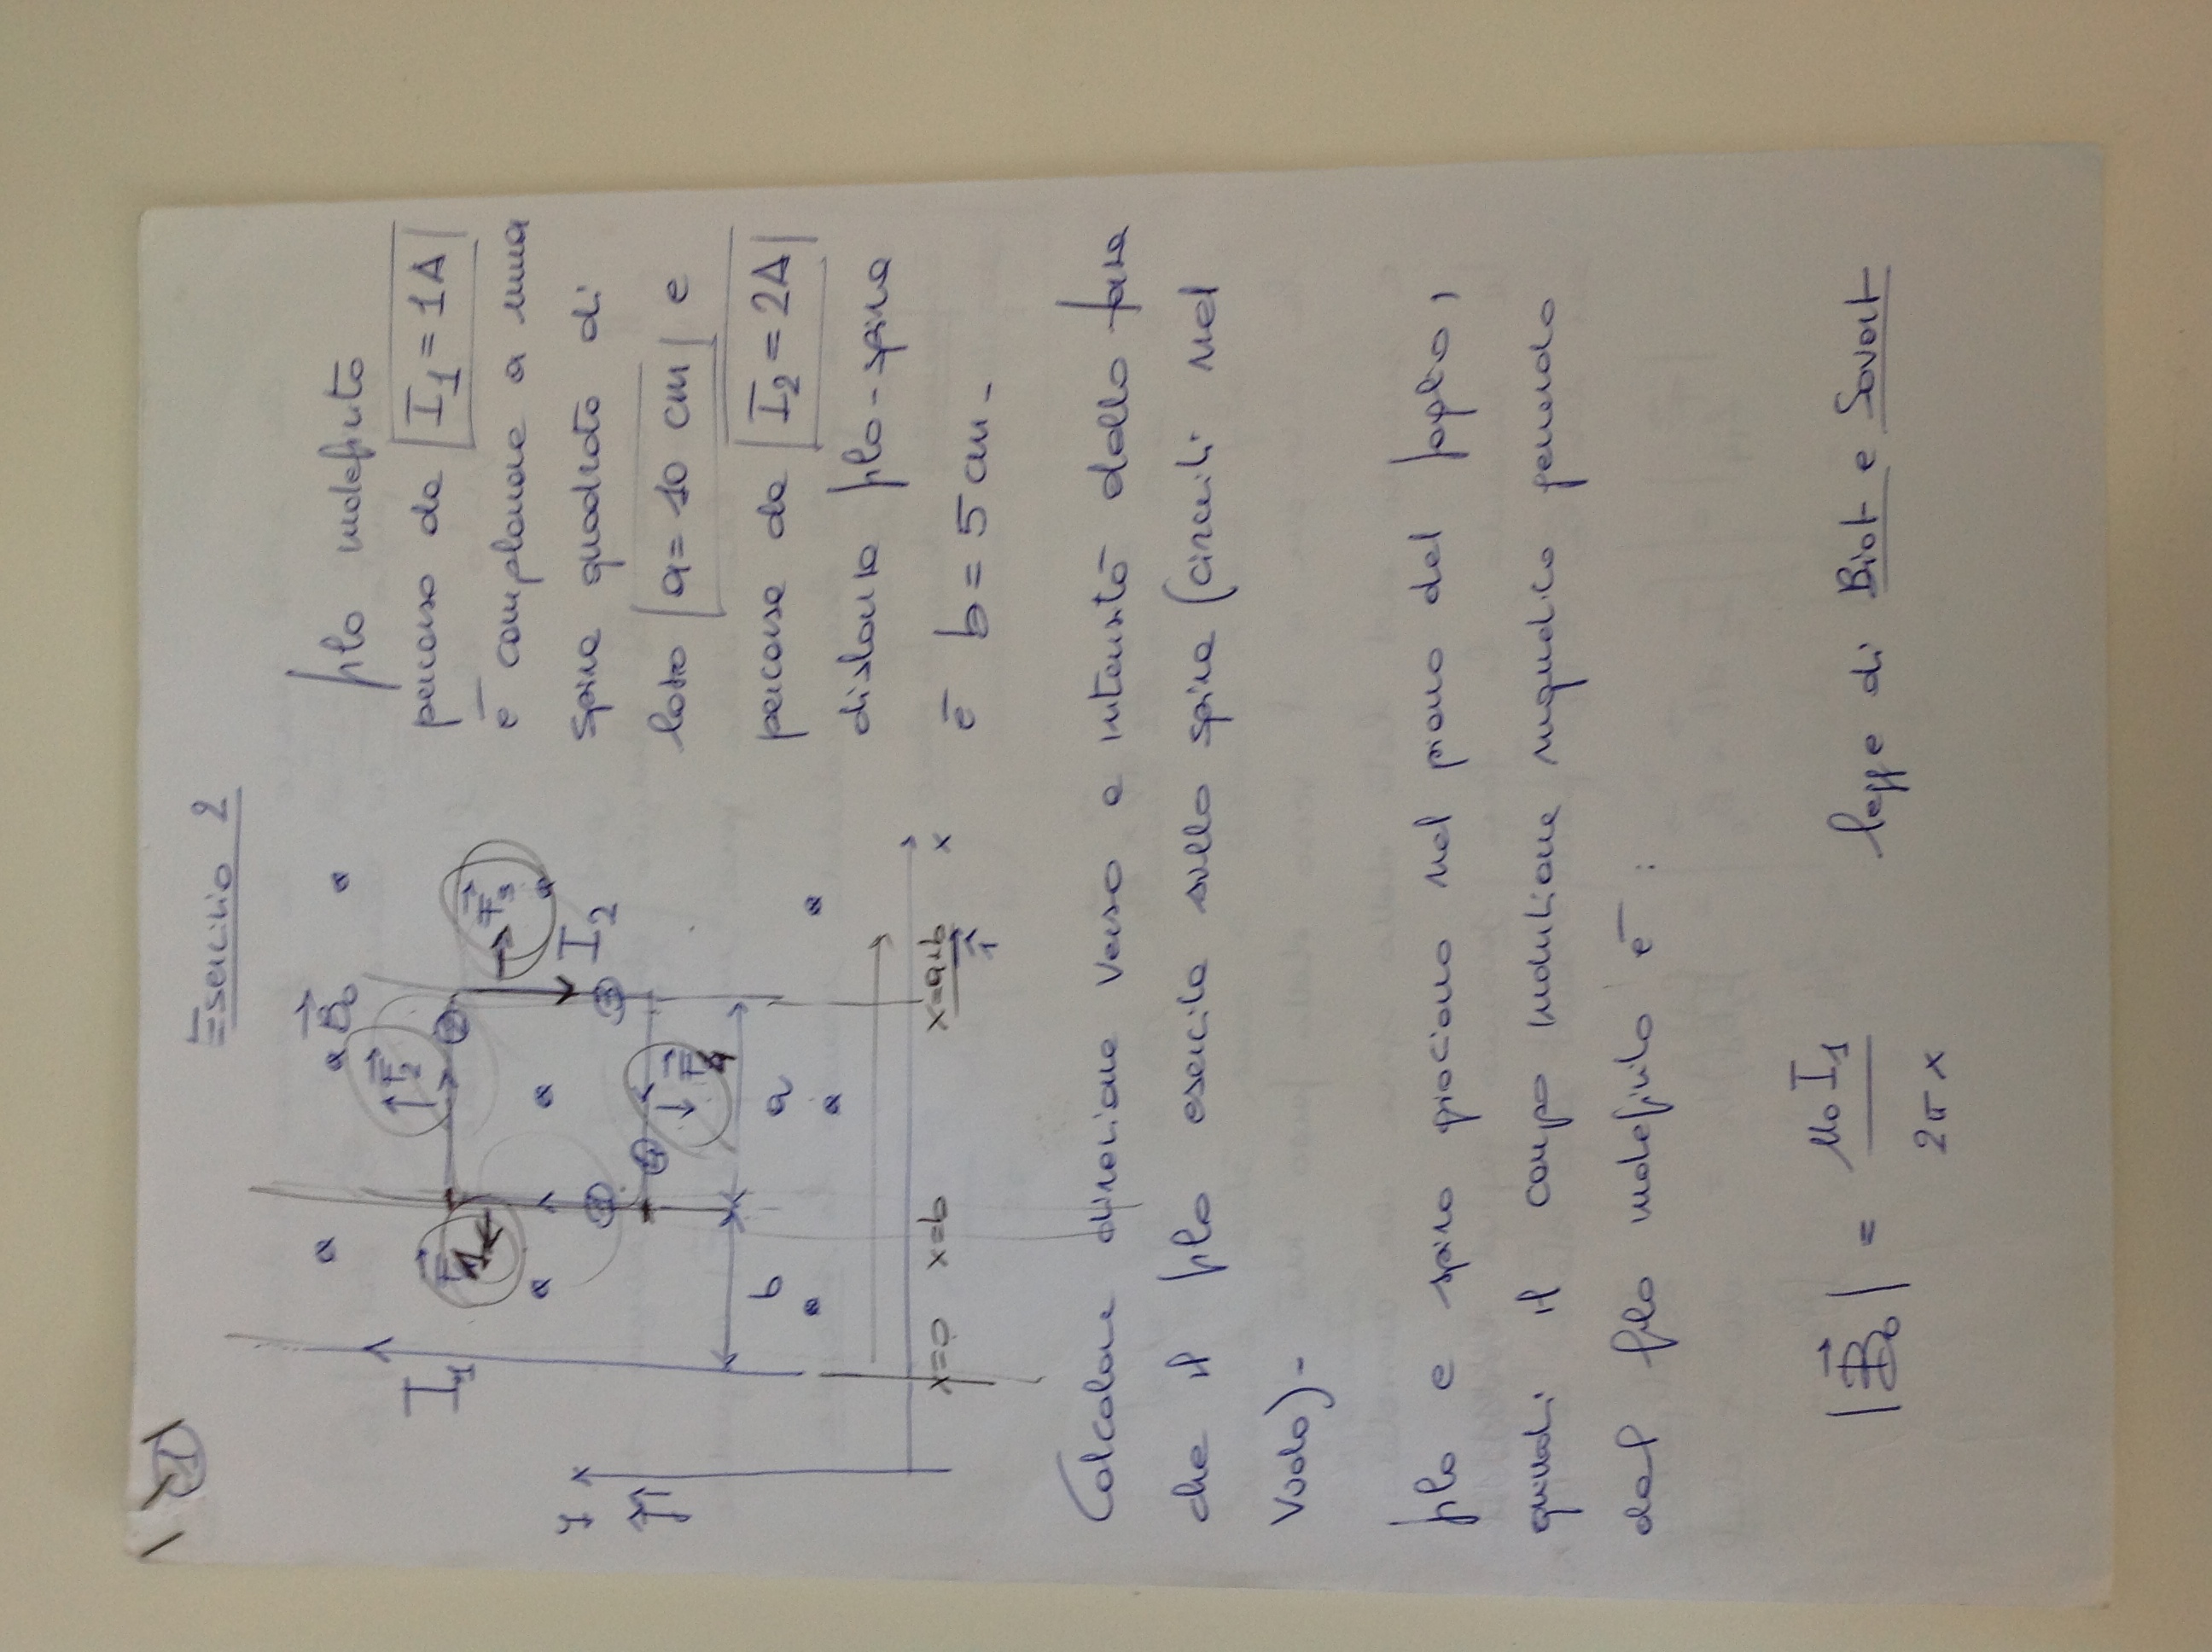 1
Esercizio 2
B₀
F₂
I₁
F₁
2
F₃
I₂
y
ĵ
1
3
4
F₄
b
a
x=0
x=b
x=a+b
x
î
filo indefinito
percorso da I₁ = 1A
è complanare a una
spira quadrata di
lato a = 10 cm e
percorsa da I₂ = 2A
distanza filo-spira
è b = 5 cm.
Calcolare direzione verso e intensità della forza
che il filo esercita sulla spira (circuiti nel
vuoto).
filo e spira giacciono nel piano del foglio,
quindi il campo induzione magnetica generato
dal filo indefinito è :
|B₀| = μ₀ I₁ / 2π x legge di Biot e Savart